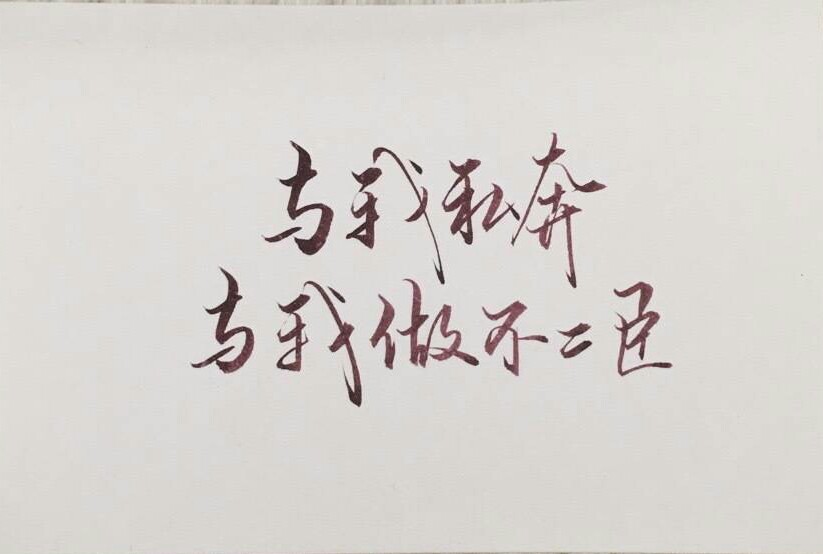 与我私奔
与我做不二臣